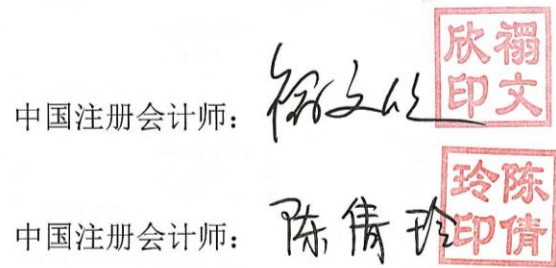 中国注册会计师: 禤文欣 禤文欣印
中国注册会计师: 陈倩玲 陈倩玲印